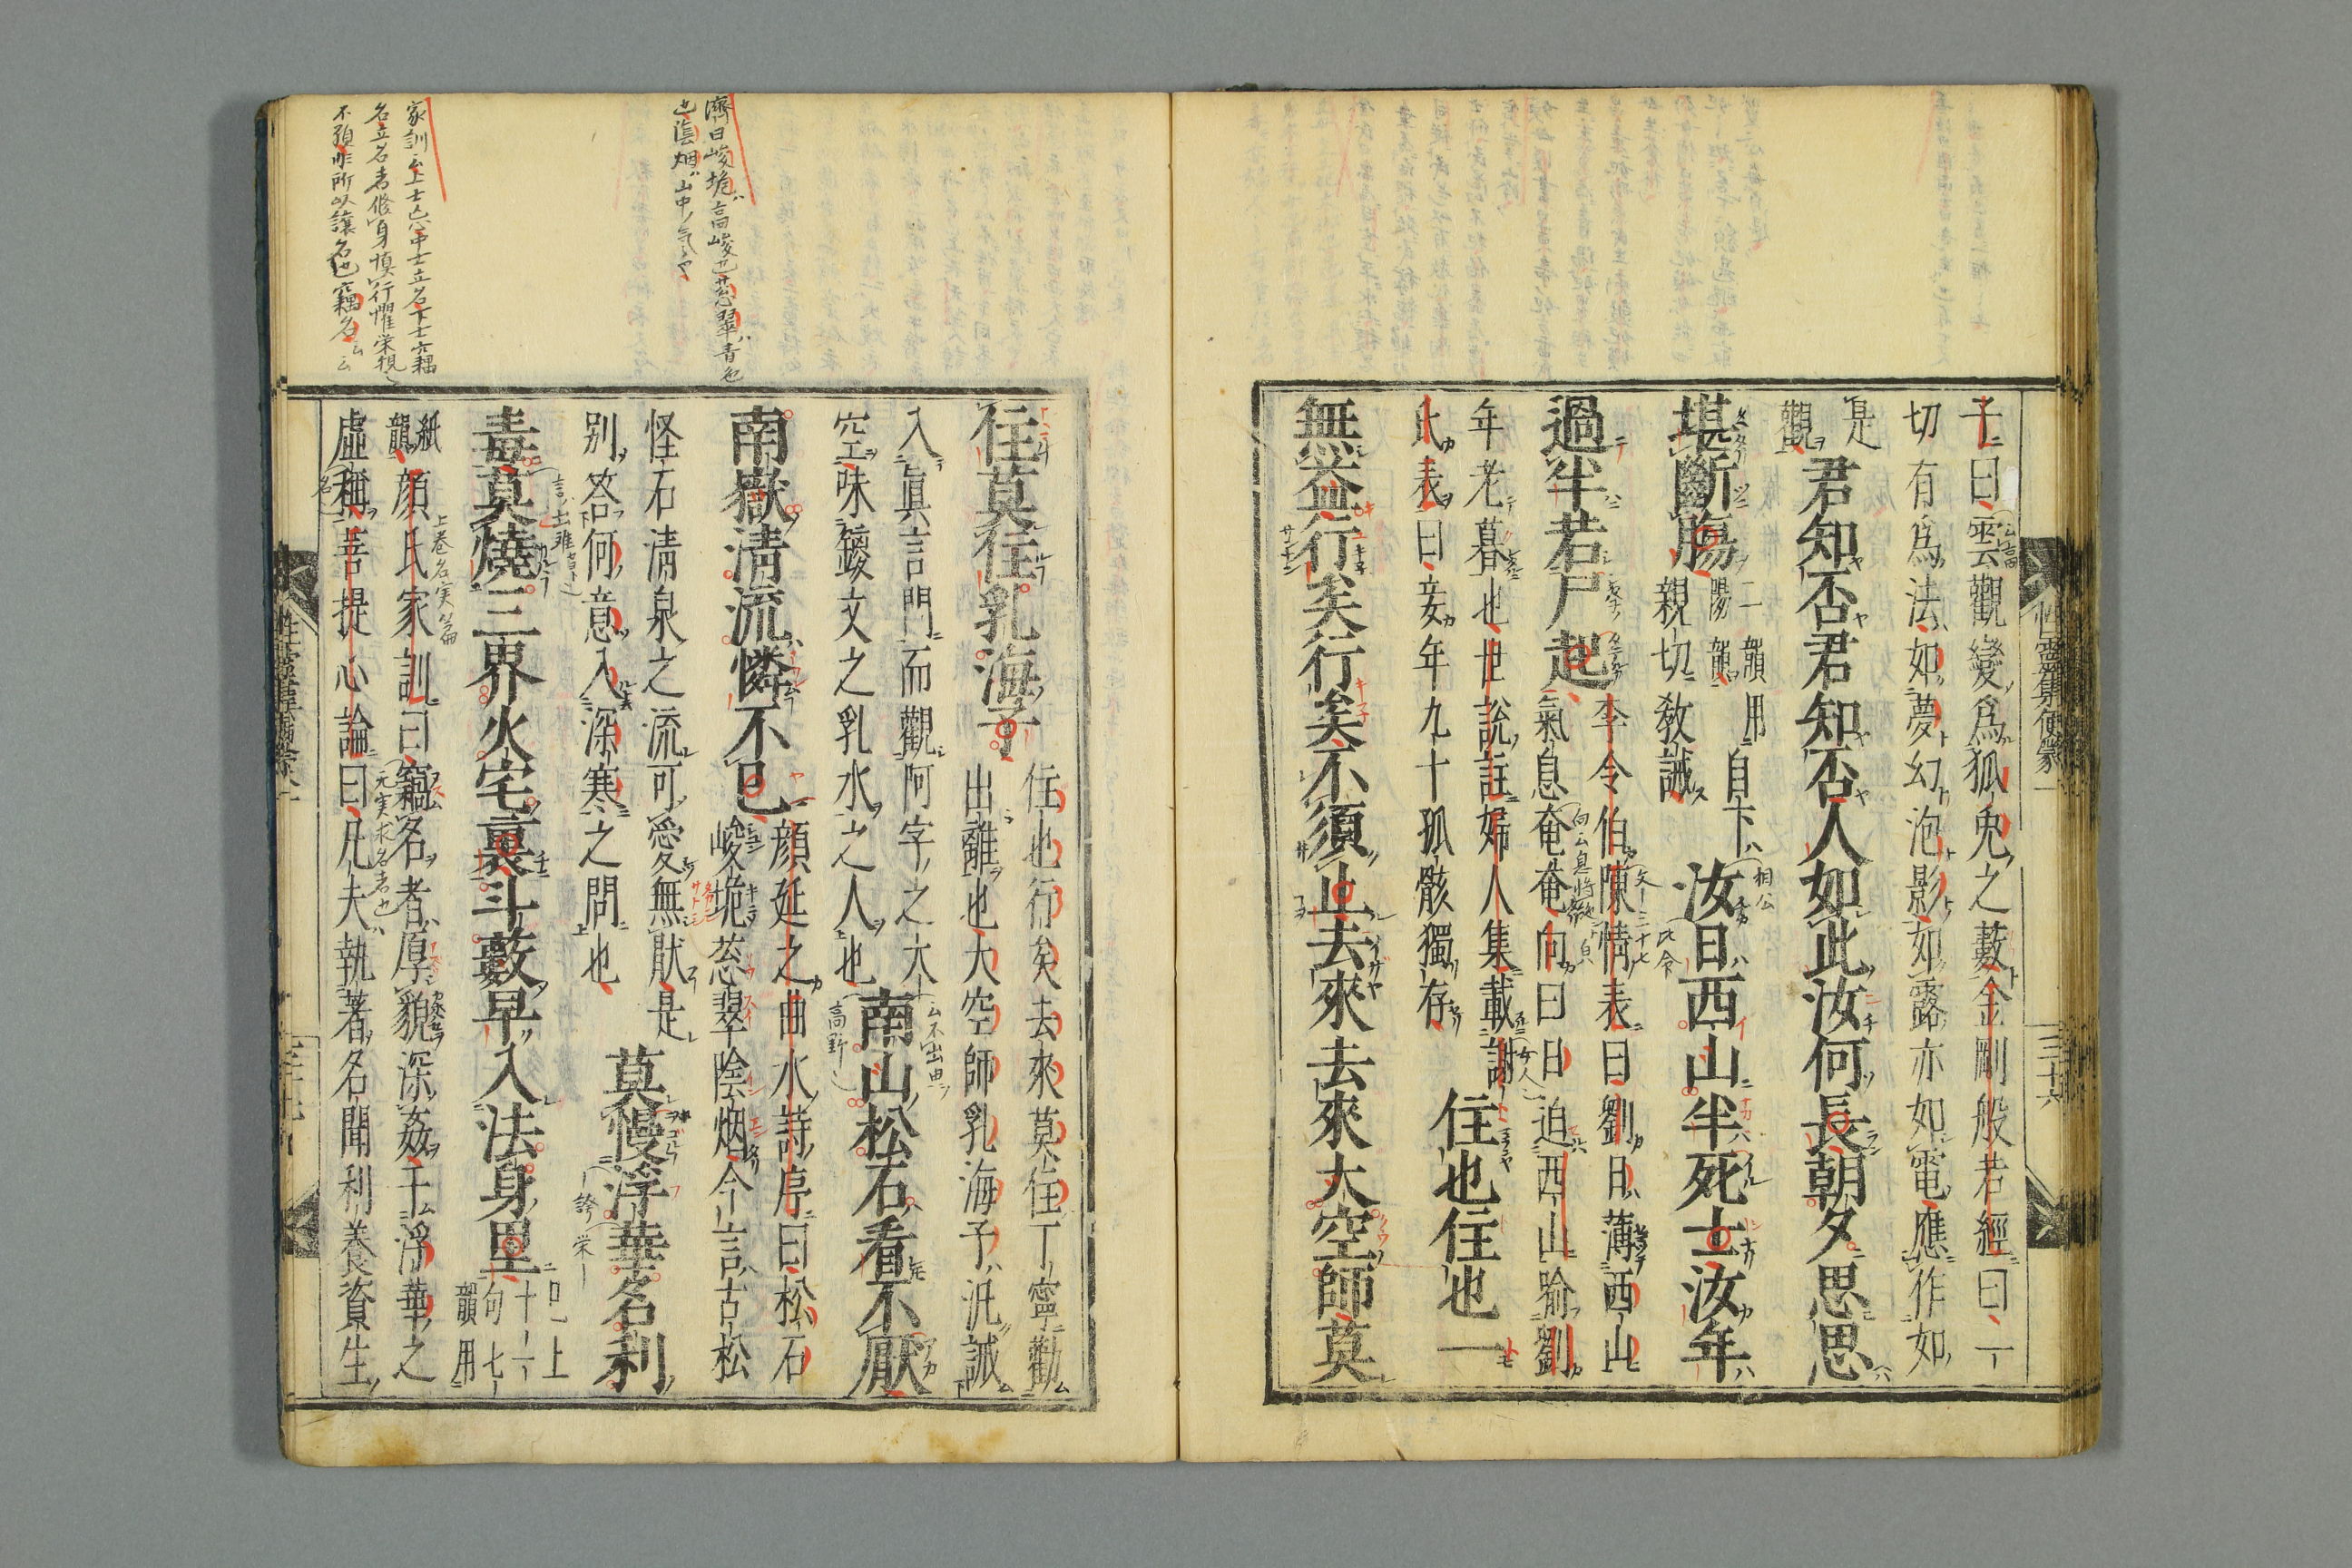 子曰雲觀變爲狐兔之藪金剛般若經曰一
切有爲法如夢幻泡影如露亦如電應作如
是觀
君知否君知否人如此汝何長朝夕思思
堪斷腸
陽韻
二韻用自下
親切敎誡
汝日西山半死士汝年
過半若尸起
李令伯陳情表曰劉日薄西山
氣息奄奄向曰日迫西山喻劉
年老暮也世說註婦人集載謝
氏表曰妾年九十孤骸獨存
住也住也一
無益行矣行矣不須止去來去來大空師莫
性靈集便蒙一
三十六
住莫住乳海子
住也行矣去來莫住丁寧勸
出離也大空師乳海子汎誡
入眞言門而觀阿字之大
空味鑁文之乳水之人也
南山松石看不厭
南嶽清流憐不已
顔延之曲水詩序曰松石
峻垝葱翠陰烟今言古松
怪石清泉之流可愛無猒是
別答何意入深寒之問也
莫慢浮華名利
毒莫燒三界火宅裏斗藪早入法身里
已上
十一
句七
韻用
紙
韻
顔氏家訓曰竊名者厚貌深姦干浮華之
虛稱菩提心論曰凡夫執著名聞利養資生
三十七
濟曰峻垝高峻也葱翠青色
也陰烟山中ノ氣ヤ
家訓云上士忘中士立名下士竊
名立名者修身愼行懼栄
不顕非所以讓名也竊名云云
上卷名実篇
高野